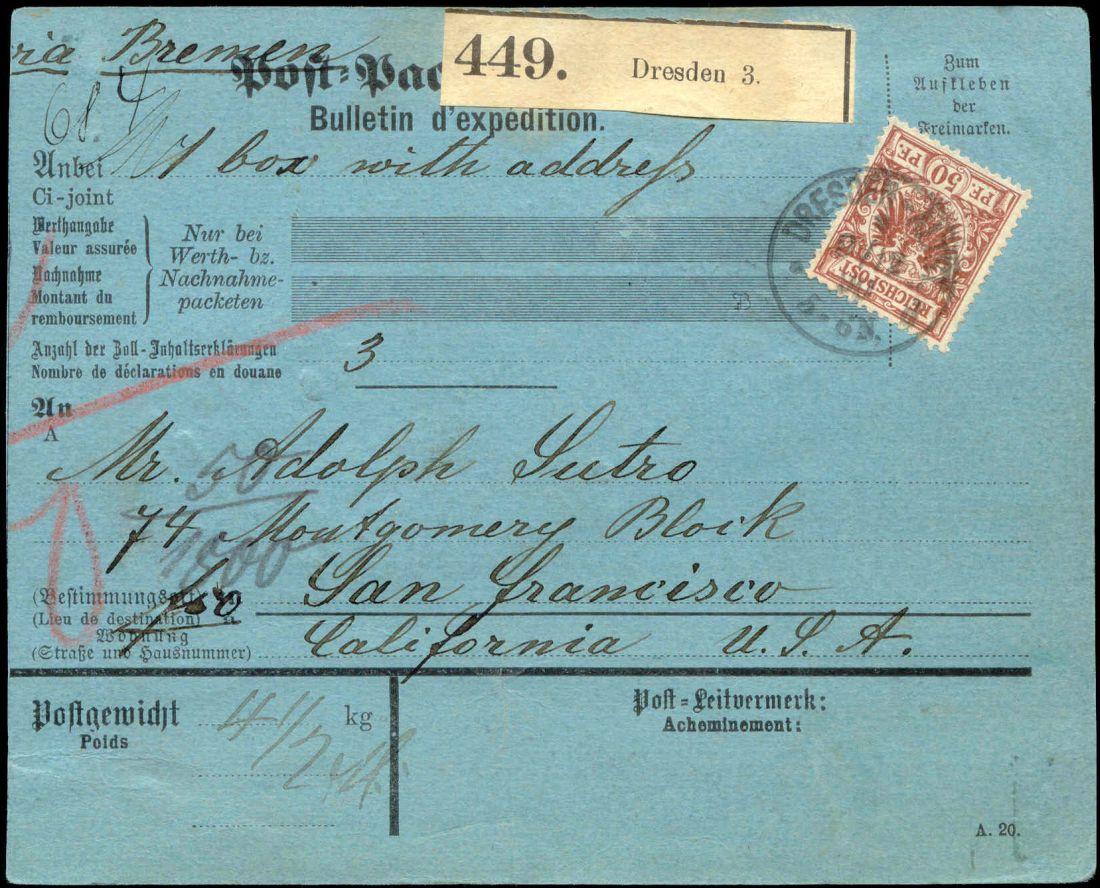 via Bremen
449. Dresden 3.
Post-Pac
Bulletin d'expédition.
Zum
Aufkleben
der
Freimarken.
68.
Anbei 1 box with address
Ci-joint
Werthangabe
Valeur assurée
Nachnahme
Montant du
remboursement
Nur bei
Werth- bz.
Nachnahme-
packeten
50 PF. PF. 50
REICHSPOST
DRESDEN
5-6N.
Anzahl der Zoll-Inhaltserklärungen
Nombre de déclarations en douane
3
An
A
Mr. Adolph Sutro
50
74 Montgomery Block
1800
(Bestimmungsort) San Francisco
(Lieu de destination)
Wohnung
(Straße und Hausnummer) California U.S.A.
Postgewicht 4 1/2 kg
Poids
Post-Leitvermerk:
Acheminement:
A. 20.